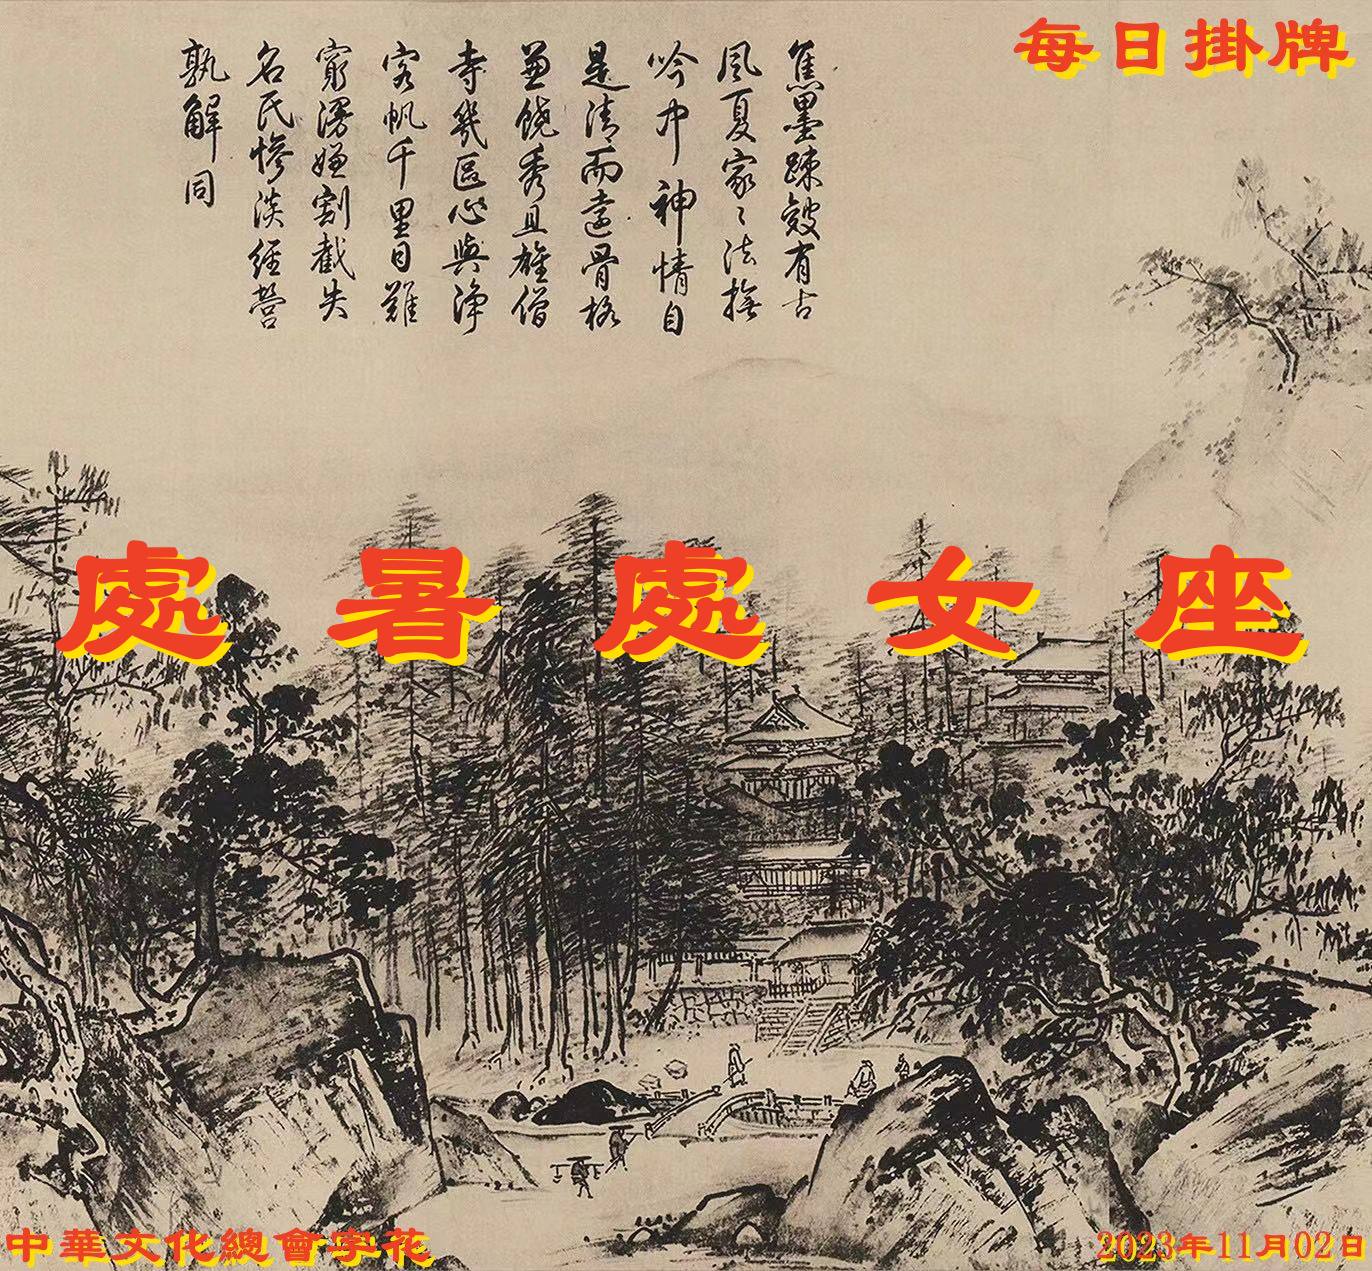 每日掛牌
焦墨踈皴有古
風夏家〻法撫
吟中神情自
是清而遠骨格
兼饒秀且雄僧
寺幾區心與淨
客帆千里目難
窮漫嫌割截失
名氏慘淡經營
孰解同
處暑處女座
中華文化總會字花
2023年11月02日